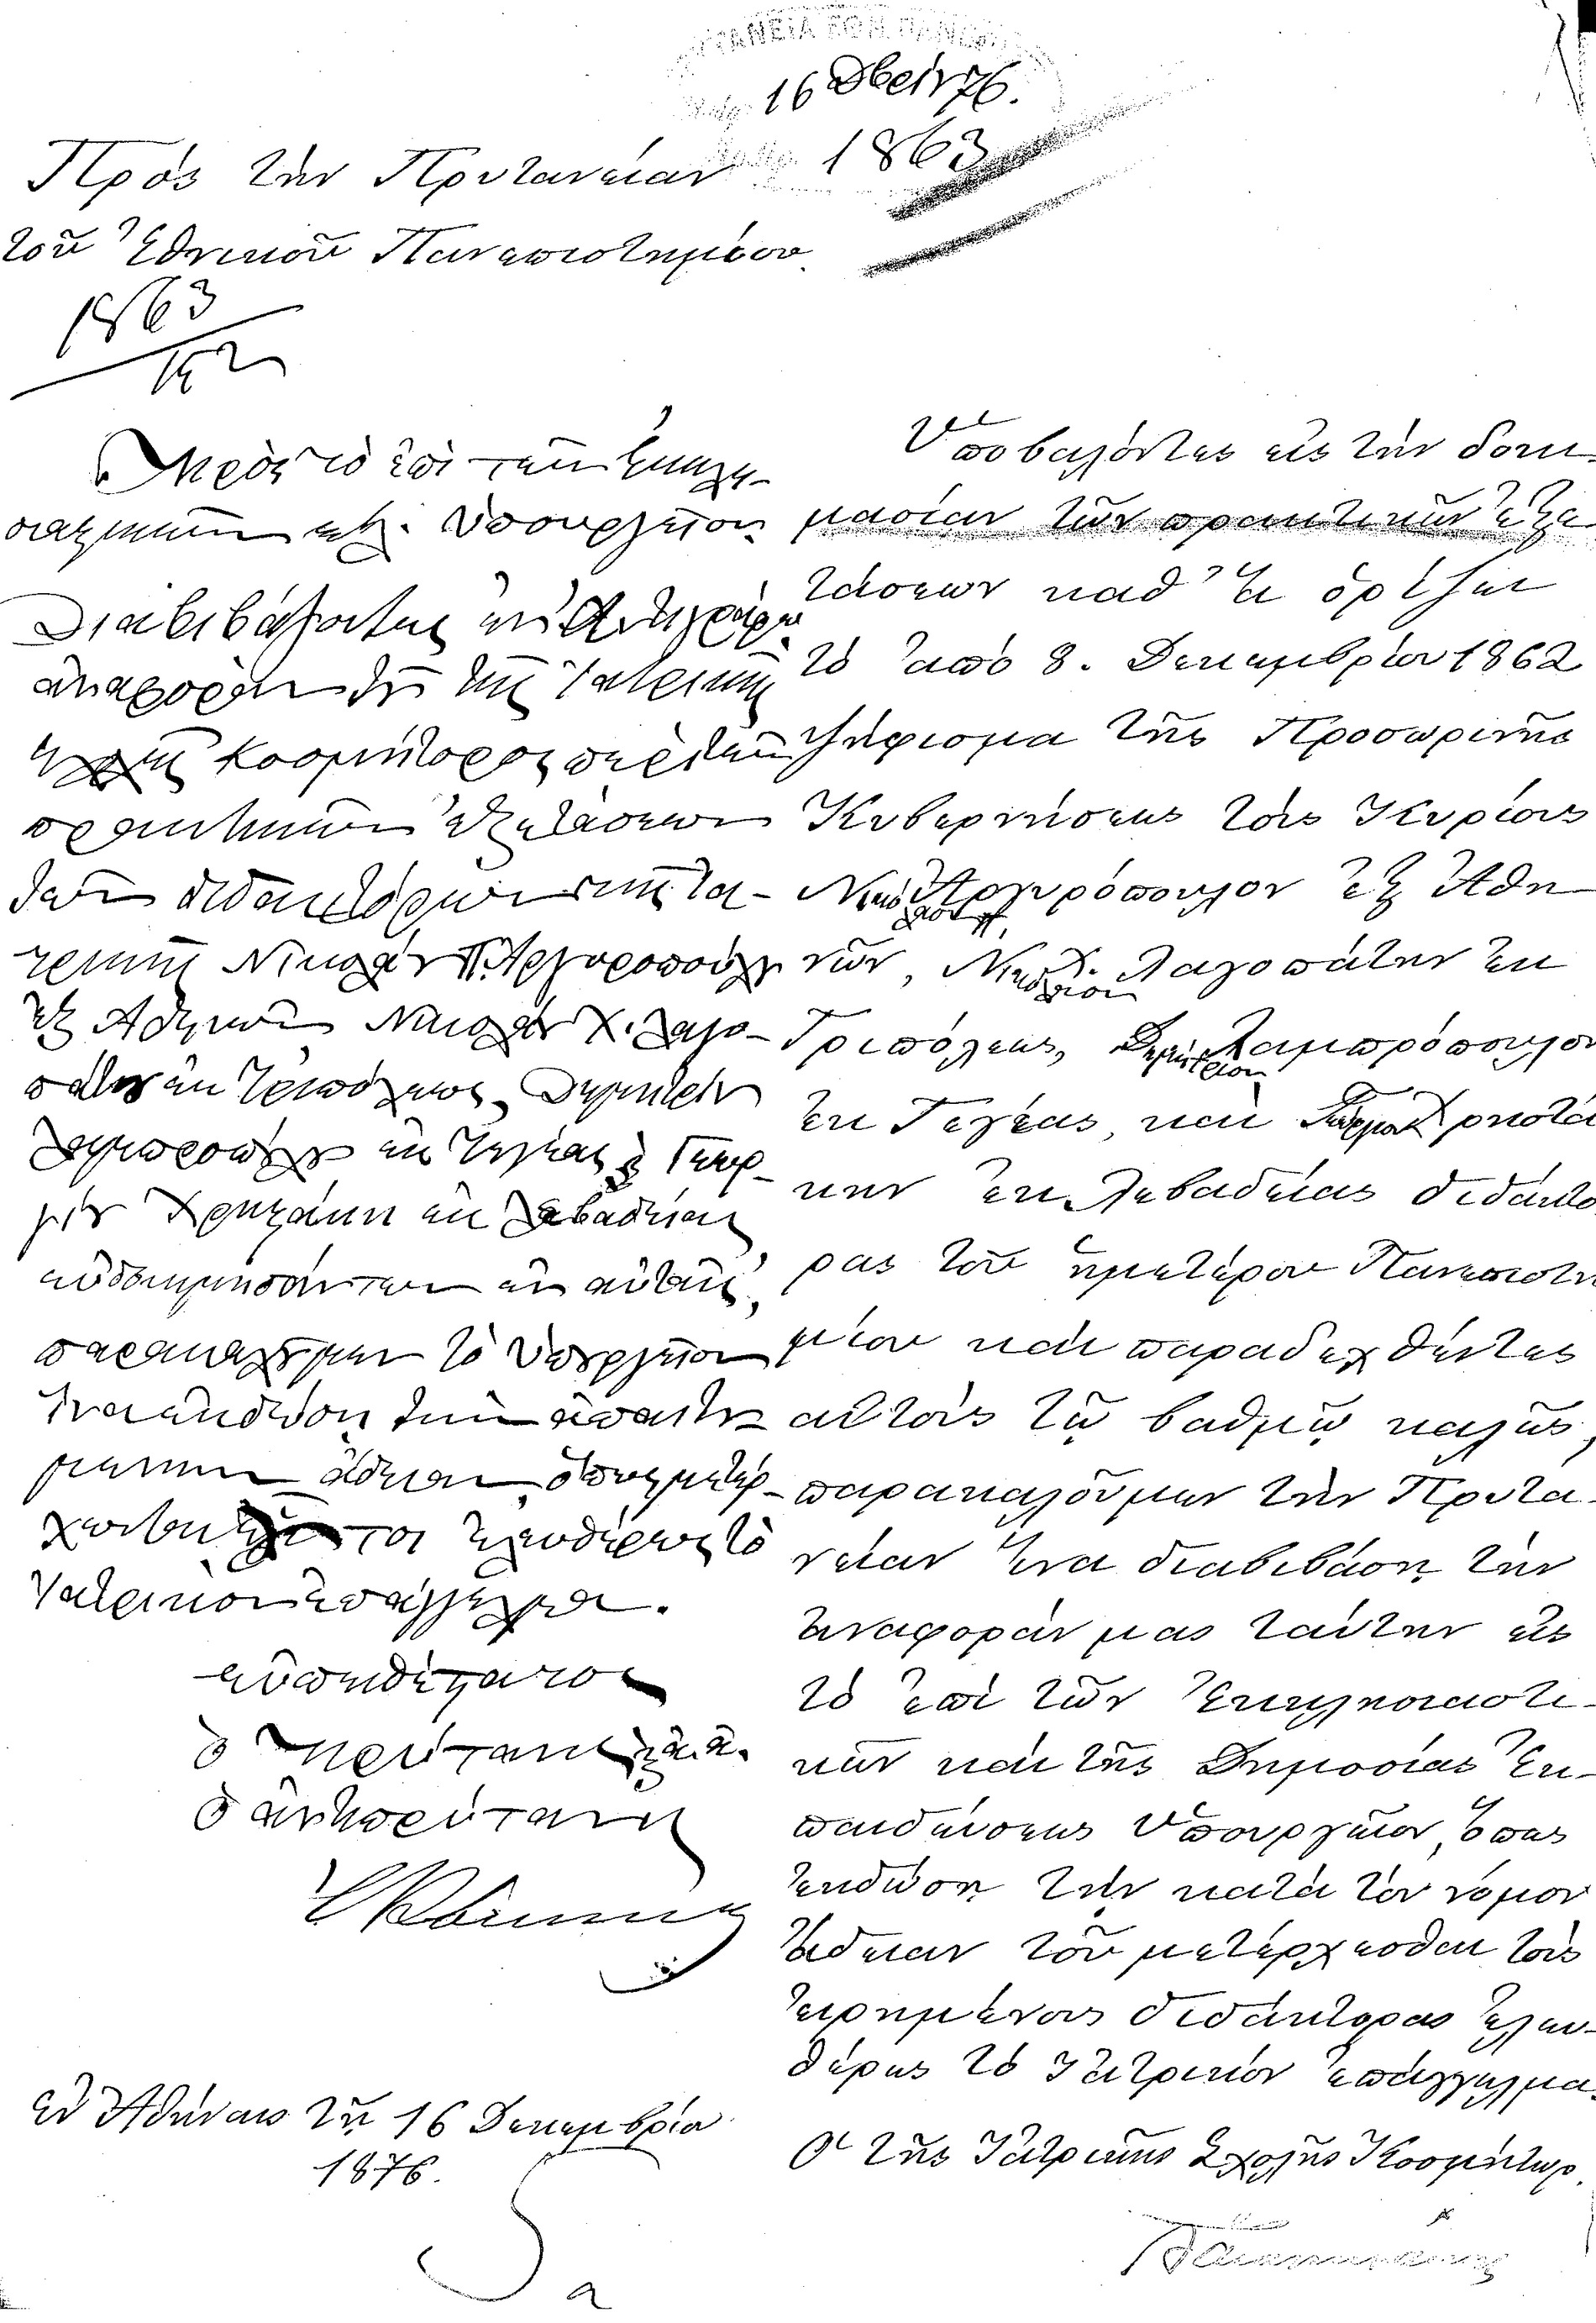 ΠΡΥΤΑΝΕΙΑ ΕΘΝ. ΠΑΝΕΠ
16 Δβρίου 76.
1863
Πρὸς τὴν Πρυτανείαν
τοῦ Ἐθνικοῦ Πανεπιστημίου
1863
Πρὸς τὸ ἐπὶ τῶν Ἐκκλη-
σιαστικῶν κτλ. Ὑπουργεῖον
Διαβιβάζοντες ἐν ἀντιγράφῳ
ἀναφορὰν τοῦ τῆς Ἰατρικῆς
Σχολῆς Κοσμήτορος περὶ τῶν
πρακτικῶν ἐξετάσεων
τῶν διδακτόρων τῆς Ἰα-
τρικῆς Νικολάου Π. Ἀργυροπούλου
ἐξ Ἀθηνῶν Νικολάου Χ. Λαγο-
πάτου ἐκ Τριπόλεως, Δημητρίου
Λαμπροπούλου ἐκ Τεγέας & Γεωρ-
γίου Χρηστάκη ἐκ Λεβαδείας
εὐδοκιμησάντων ἐν αὐταῖς,
παρακαλοῦμεν τὸ Ὑπουργεῖον
ἵνα ἐκδώσῃ τὴν ἀπαιτου
μένην ἄδειαν ὅπως μετέρ-
χωνται οὗτοι ἐλευθέρως τὸ
Ἰατρικὸν ἐπάγγελμα.
εὐπειθέστατος
ὁ Πρύτανις κ.ἀ.ἀ.
ὁ ἀντιπρύτανις
ἐν Ἀθήναις τῇ 16 Δεκεμβρίου
1876.
Ὑποβαλόντες εἰς τὴν δοκι-
μασίαν τῶν πρακτικῶν ἐξε
τάσεων καθ' ἃ ὁρίζει
τὸ ἀπὸ 8. Δεκεμβρίου 1862
ψήφισμα τῆς Προσωρινῆς
Κυβερνήσεως τοὺς Κυρίους
Νικόλαον Π. Ἀργυρόπουλον ἐξ Ἀθη
νῶν, Νικόλαον Χ. Λαγοπάτην ἐκ
Τριπόλεως, Δημήτριον Λαμπρόπουλον
ἐκ Τεγέας, καὶ Γεώργιον Χρηστά
κην ἐκ Λεβαδείας διδάκτο
ρας τοῦ ἡμετέρου Πανεπιστη
μίου καὶ παραδεχθέντες
αὐτοὺς τῷ βαθμῷ καλῶς,
παρακαλοῦμεν τὴν Πρυτα-
νείαν ἵνα διαβιβάσῃ τὴν
ἀναφοράν μας ταύτην εἰς
τὸ ἐπὶ τῶν Ἐκκλησιαστι-
κῶν καὶ τῆς Δημοσίας Ἐκ-
παιδεύσεως Ὑπουργεῖον, ὅπως
ἐκδώσῃ τὴν κατὰ τὸν νόμον
ἄδειαν τοῦ μετέρχεσθαι τοὺς
εἰρημένους διδάκτορας ἐλευ-
θέρως τὸ Ἰατρικὸν ἐπάγγελμα.
Ὁ τῆς Ἰατρικῆς Σχολῆς Κοσμήτωρ.